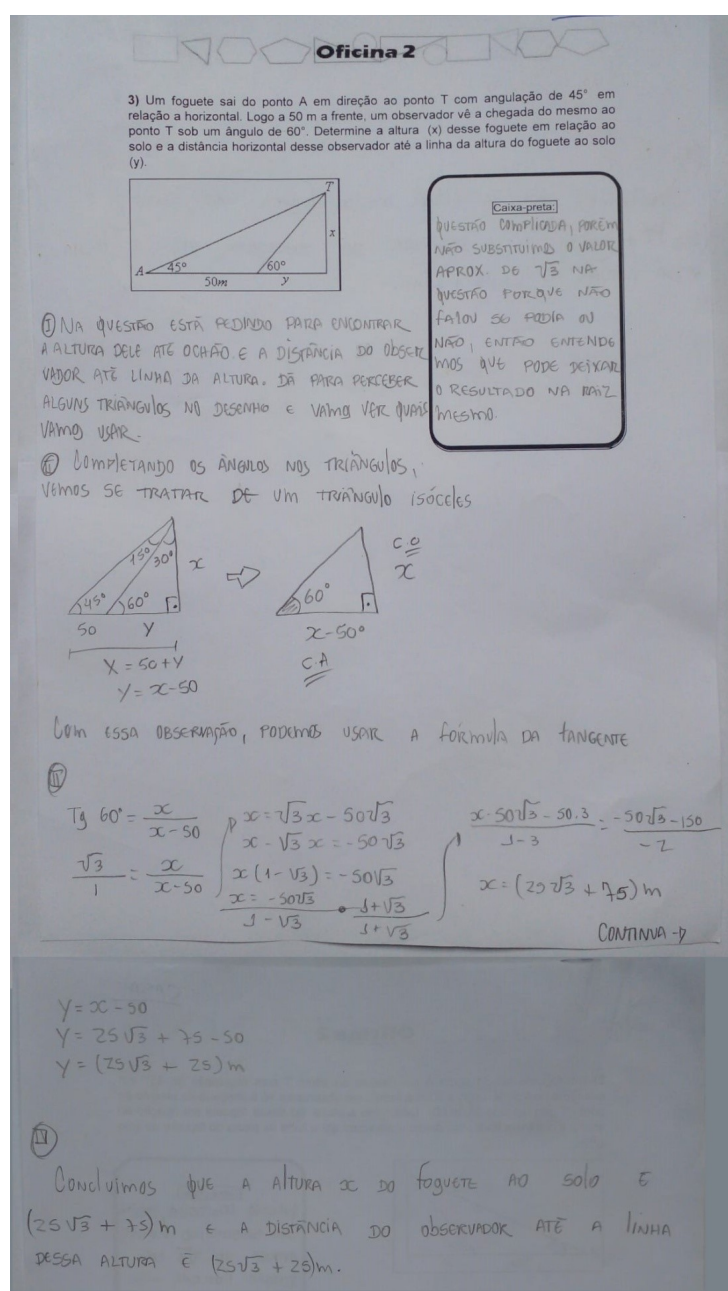 Oficina 2
3) Um foguete sai do ponto A em direção ao ponto T com angulação de 45° em
relação a horizontal. Logo a 50 m a frente, um observador vê a chegada do mesmo ao
ponto T sob um ângulo de 60°. Determine a altura (x) desse foguete em relação ao
solo e a distância horizontal desse observador até a linha da altura do foguete ao solo
(y).
T
x
A
45°
60°
50m
y
Caixa-preta:
QUESTÃO COMPLICADA, PORÉM
NÃO SUBSTITUIMOS O VALOR
APROX. DE √3 NA
QUESTÃO PORQUE NÃO
FALOU SE PODIA OU
NÃO, ENTÃO ENTENDE
MOS QUE PODE DEIXAR
O RESULTADO NA RAIZ
MESMO.
I NA QUESTÃO ESTÁ PEDINDO PARA ENCONTRAR
A ALTURA DELE ATÉ OCHÃO. E A DISTÂNCIA DO OBSER
VADOR ATÉ LINHA DA ALTURA. DÁ PARA PERCEBER
ALGUNS TRIÂNGULOS NO DESENHO E VAMOS VER QUAIS
VAMOS USAR.
II COMPLETANDO OS ÂNGULOS NOS TRIÂNGULOS,
VEMOS SE TRATAR DE UM TRIÂNGULO ISÓCELES
15° 30° x
45° 60°
50 Y
X = 50 + Y
Y = x - 50
60°
C.O
x
x - 50°
C.A
COM ESSA OBSERVAÇÃO, PODEMOS USAR A FÓRMULA DA TANGENTE
III
Tg 60° = x / x - 50
√3 / 1 = x / x - 50
x = √3 x - 50√3
x - √3 x = -50√3
x (1 - √3) = -50√3
x = -50√3 / 1 - √3 • 1 + √3 / 1 + √3
x - 50√3 - 50.3 / 1 - 3 = -50√3 - 150 / -2
x = (25√3 + 75) m
CONTINUA →
Y = x - 50
Y = 25√3 + 75 - 50
Y = (25√3 + 25) m
IV
CONCLUIMOS QUE A ALTURA x DO FOGUETE AO SOLO É
(25√3 + 75) m E A DISTÂNCIA DO OBSERVADOR ATÉ A LINHA
DESSA ALTURA É (25√3 + 25)m.